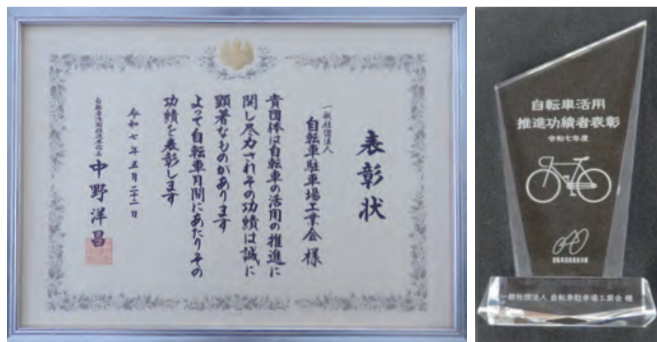 表彰状
一般社団法人
自転車駐車場工業会 様
貴団体は自転車の活用の推進に
関し尽力されその功績は誠に
顕著なものがあります
よって自転車月間にあたりその
功績を表彰します
令和七年五月二十二日
自転車活用推進本部長
中野洋昌
自転車活用
推進功績者表彰
令和七年度
一般社団法人 自転車駐車場工業会 様